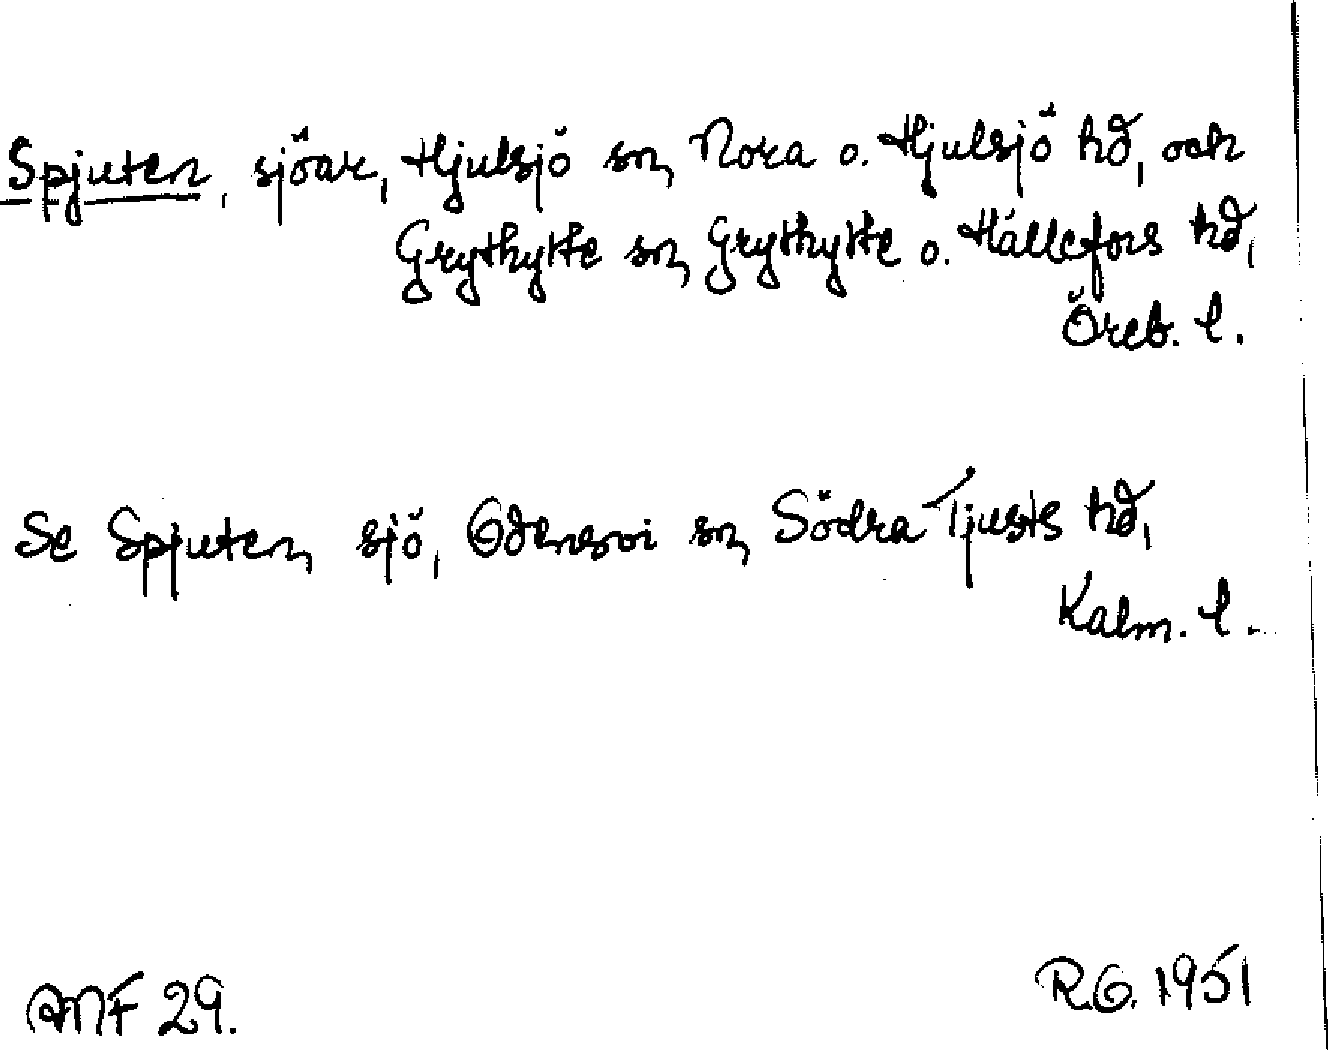 Spjuten, sjöar, Hjulsjö sn, Nora o. Hjulsjö hd, och
Grythytte sn, Grythytte o. Hällefors hd,
Öreb. l.
Se Spjuten, sjö, Odensvi sn, Södra Tjusts hd,
Kalm. l.
ANF 29.
R.G. 1951